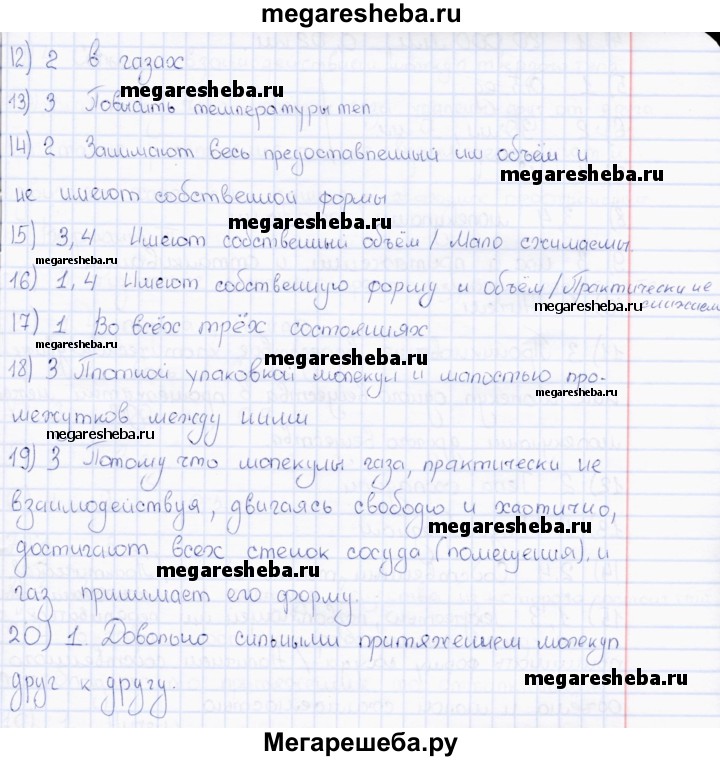 megaresheba.ru
12) 2 В газах
megaresheba.ru
13) 3 Повысить температуры тел
14) 2 Занимают весь предоставленный им объём и
megaresheba.ru
не имеют собственной формы
megaresheba.ru
15) 3,4 Имеют собственный объём / Мало сжимаемы.
megaresheba.ru
16) 1,4 Имеют собственную форму и объём / Практически не
megaresheba.ru
17) 1 Во всех трёх состояниях
megaresheba.ru
18) 3 Плотной упаковкой молекул и малостью про-
megaresheba.ru
межутков между ними
megaresheba.ru
19) 3 Потому что молекулы газа, практически не
взаимодействуя, двигаясь свободно и хаотично,
megaresheba.ru
достигают всех стенок сосуда (помещения), и
megaresheba.ru
газ принимает его форму.
20) 1 Довольно сильными притяжением молекул
друг к другу.
megaresheba.ru
Мегарешеба.ру